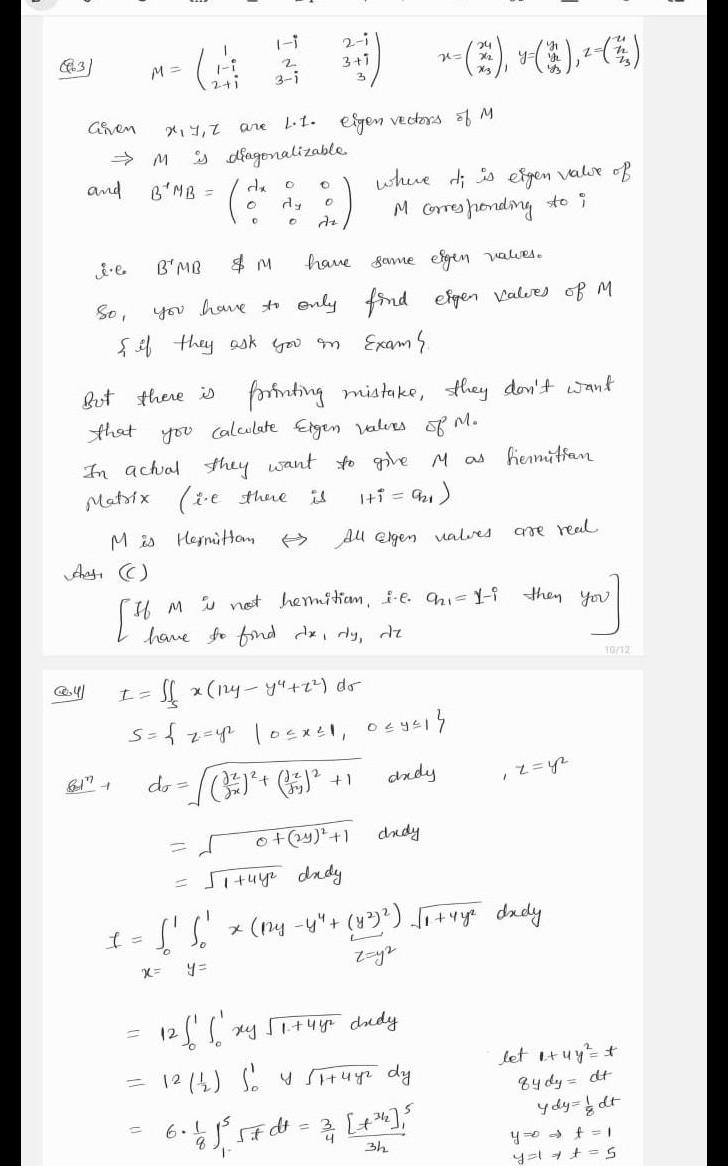 Q.3) M = ( 1 1-i 2-i / 1-i 2 3+i / 2+i 3-i 3 ) x = ( x1 x2 x3 ), y = ( y1 y2 y3 ), z = ( z1 z2 z3 )
Given x, y, z are L.I. eigen vectors of M
⇒ M is diagonalizable
and B⁻¹MB = ( dx 0 0 / 0 dy 0 / 0 0 dz ) where di is eigen value of
M corresponding to i
i.e. B⁻¹MB & M have same eigen values.
So, you have to only find eigen values of M
{ if they ask you in Exam }.
But there is printing mistake, they don't want
that you calculate Eigen values of M.
In actual they want to give M as hermitian
Matrix (i.e there is 1+i = a21)
M is Hermitian ⇔ All eigen values are real
Ans. (C)
[ If M is not hermitian, i.e. a21 = 1-i then you
have to find dx, dy, dz ]
10/12
Q.4) I = ∬S x(12y - y⁴ + z²) dσ
S = { z = y² | 0 ≤ x ≤ 1, 0 ≤ y ≤ 1 }
Solⁿ → dσ = √((∂z/∂x)² + (∂z/∂y)² + 1) dxdy , z = y²
= √(0 + (2y)² + 1) dxdy
= √(1+4y²) dxdy
I = ∫₀¹ ∫₀¹ x (12y - y⁴ + (y²)²) √(1+4y²) dxdy
x= y= z=y²
= 12 ∫₀¹ ∫₀¹ xy √(1+4y²) dxdy
let 1+4y² = t
= 12 (1/2) ∫₀¹ y √(1+4y²) dy
8y dy = dt
y dy = 1/8 dt
= 6 · 1/8 ∫₁⁵ √t dt = 3/4 [t^3/2]₁⁵ / 3/2
y=0 ⇒ t = 1
y=1 ⇒ t = 5